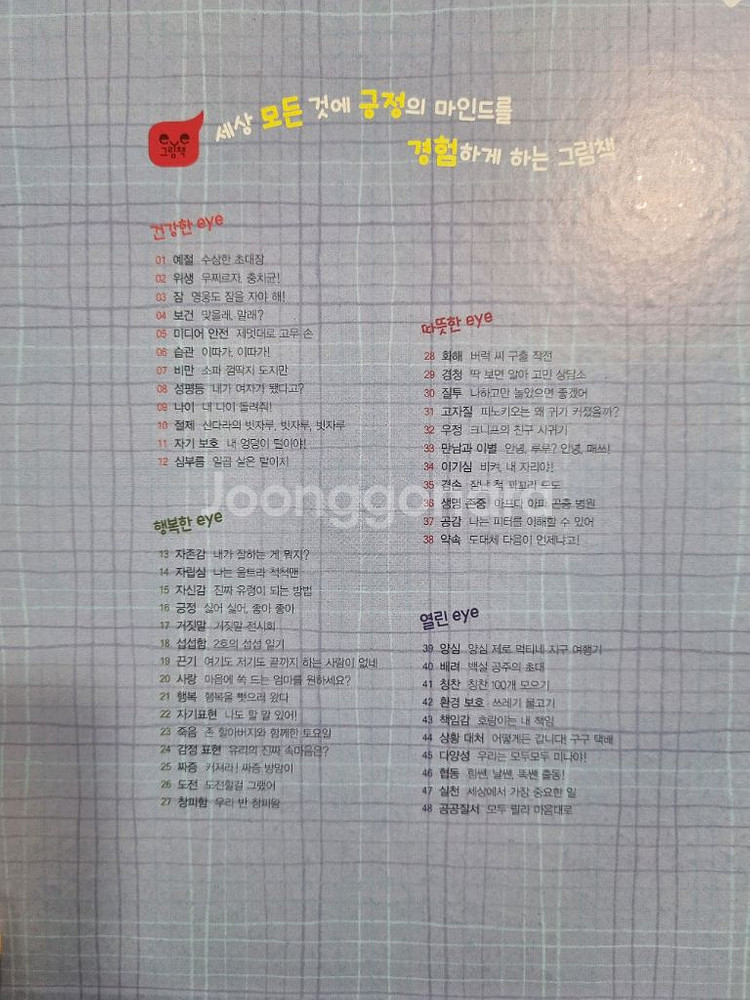 eye
그림책
세상 모든 것에 긍정의 마인드를
경험하게 하는 그림책
건강한 eye
01 예절 수상한 초대장
02 위생 무찌르자, 충치균!
03 잠 영웅도 잠을 자야 해!
04 보건 맞을래, 말래?
05 미디어 안전 제멋대로 고무 손
06 습관 이따가, 이따가!
07 비만 소파 껌딱지 도지만
08 성평등 내가 여자가 됐다고?
09 나이 내 나이 돌려줘!
10 절제 산다라의 빗자루, 빗자루, 빗자루
11 자기 보호 내 엉덩이 털이야!
12 심부름 일곱 살은 말이지
행복한 eye
13 자존감 내가 잘하는 게 뭐지?
14 자립심 나는 울트라 척척맨
15 자신감 진짜 유령이 되는 방법
16 긍정 싫어 싫어, 좋아 좋아
17 거짓말 거짓말 전시회
18 섭섭함 2호의 섭섭 일기
19 끈기 여기도 저기도 끝까지 하는 사람이 없네
20 사랑 마음에 쏙 드는 엄마를 원하세요?
21 행복 행복을 뺏으러 왔다
22 자기표현 나도 말 할 있어!
23 죽음 존 할아버지와 함께한 토요일
24 감정 표현 유리의 진짜 속마음은?
25 짜증 커져라! 짜증 방망이
26 도전 도전할걸 그랬어
27 창피함 우리 반 창피왕
따뜻한 eye
28 화해 버럭 씨 구출 작전
29 경청 딱 보면 알아 고민 상담소
30 질투 나하고만 놀았으면 좋겠어
31 고자질 피노키오는 왜 귀가 커졌을까?
32 우정 크니프의 친구 사귀기
33 만남과 이별 안녕, 루루? 안녕, 매쓰!
34 이기심 비켜, 내 자리야!
35 겸손 잘난 척 꾀꼬리
36 생명 존중 아프다 아파 곤충 병원
37 공감 나는 피터를 이해할 수 있어
38 약속 도대체 다음이 언제냐고!
열린 eye
39 양심 양심 제로 먹티네 지구 여행기
40 배려 백실 공주의 초대
41 칭찬 칭찬 100개 모으기
42 환경 보호 쓰레기 물고기
43 책임감 호랑이는 내 책임
44 상황 대처 어떻게든 갑니다! 구구 택배
45 다양성 우리는 모두모두 미나야!
46 협동 힘쎈, 날쎈, 똑쎈 출동!
47 실천 세상에서 가장 중요한 일
48 공공질서 모두 릴라 마음대로